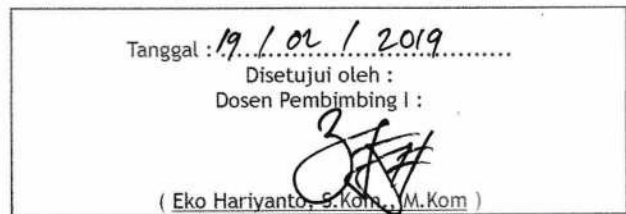 Tanggal : 19 / 02 / 2019
Disetujui oleh :
Dosen Pembimbing I :
( Eko Hariyanto, S.Kom., M.Kom )